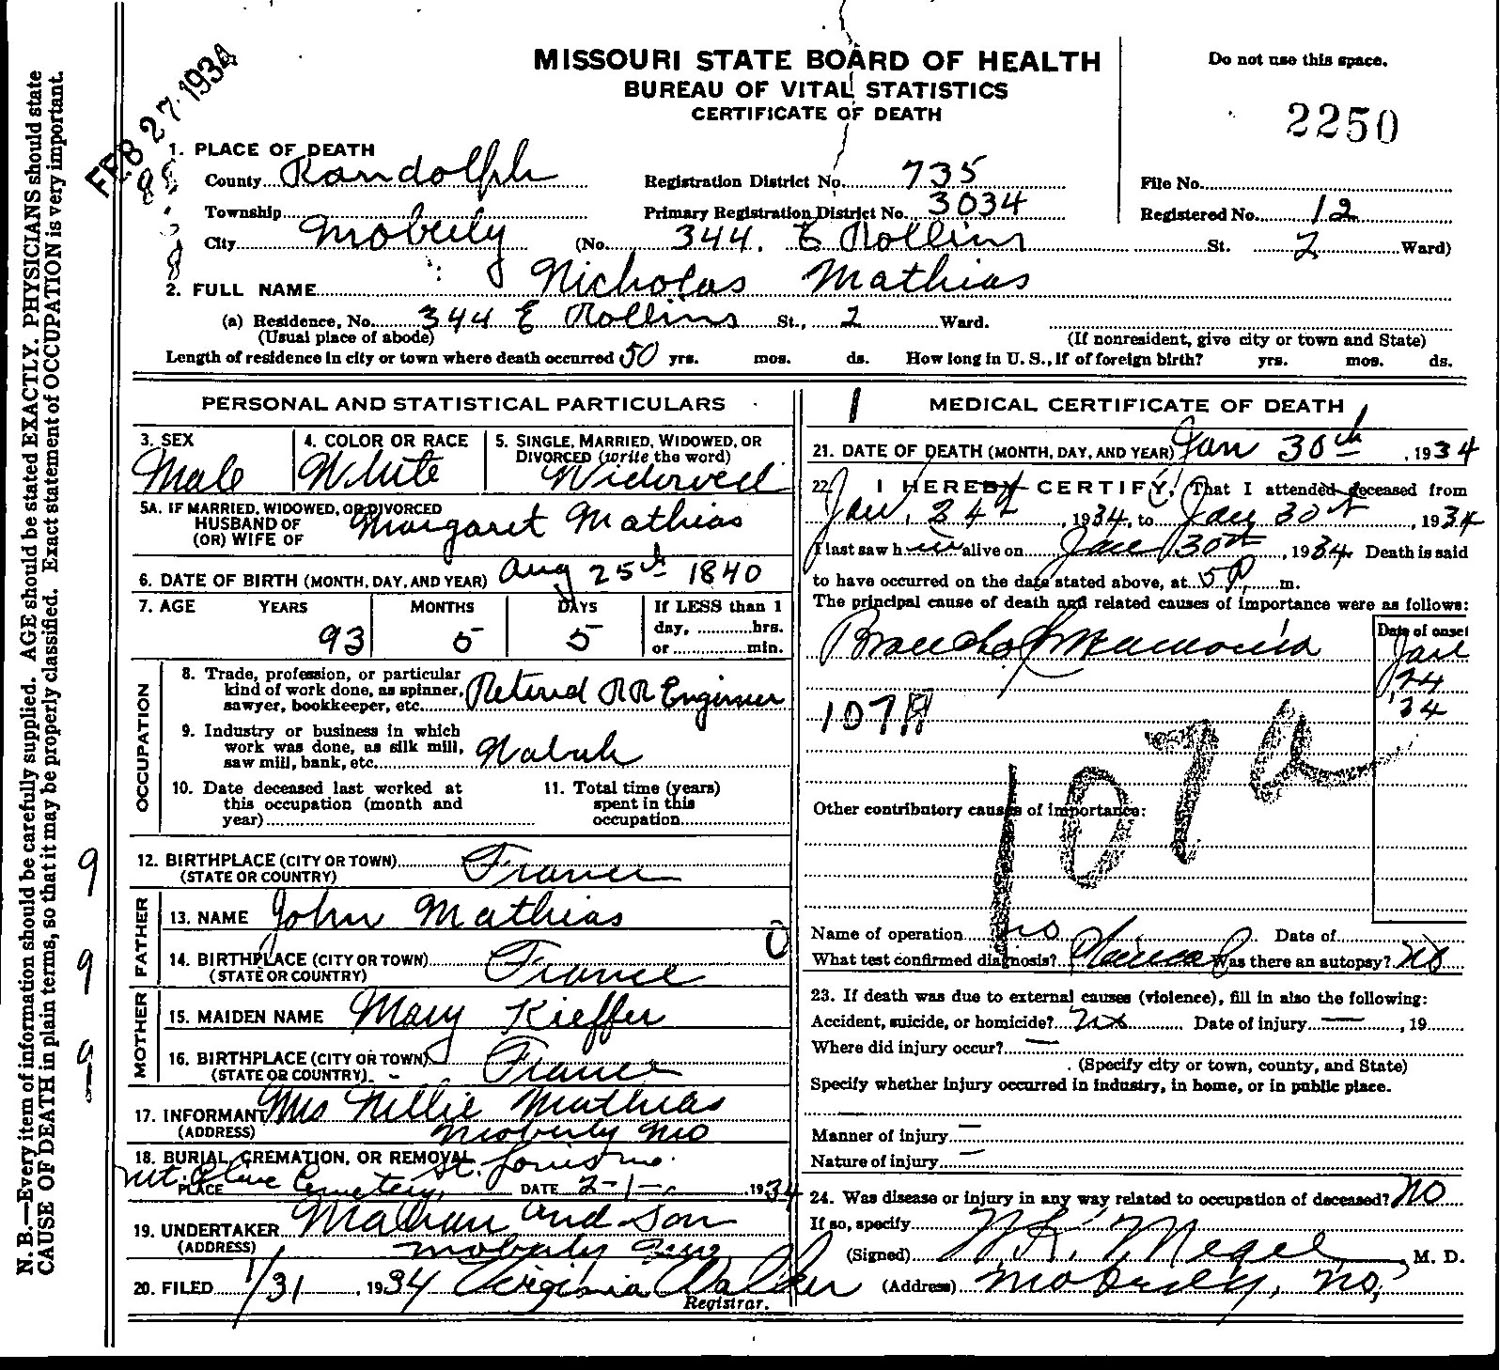 FEB 27 1934
MISSOURI STATE BOARD OF HEALTH
BUREAU OF VITAL STATISTICS
CERTIFICATE OF DEATH
Do not use this space.
2250
1. PLACE OF DEATH
County Randolph Registration District No. 735 File No.
Township Primary Registration District No. 3034 Registered No. 12
City Moberly (No. 344. E Rollins St. 2 Ward)
2. FULL NAME Nicholas Mathias
(a) Residence, No. 344 E Rollins St., 2 Ward.
(Usual place of abode) (If nonresident, give city or town and State)
Length of residence in city or town where death occurred 50 yrs. mos. ds. How long in U. S., if of foreign birth? yrs. mos. ds.
PERSONAL AND STATISTICAL PARTICULARS
3. SEX Male
4. COLOR OR RACE White
5. SINGLE, MARRIED, WIDOWED, OR DIVORCED (write the word) Widowed
5A. IF MARRIED, WIDOWED, OR DIVORCED
HUSBAND OF Margaret Mathias
(OR) WIFE OF
6. DATE OF BIRTH (MONTH, DAY, AND YEAR) Aug 25th 1840
7. AGE YEARS MONTHS DAYS If LESS than 1
93 5 5 day, hrs.
or min.
OCCUPATION
8. Trade, profession, or particular
kind of work done, as spinner,
sawyer, bookkeeper, etc. Retired RR Engineer
9. Industry or business in which
work was done, as silk mill,
saw mill, bank, etc. Wabash
10. Date deceased last worked at
this occupation (month and
year)
11. Total time (years)
spent in this
occupation
12. BIRTHPLACE (CITY OR TOWN) France
(STATE OR COUNTRY)
FATHER
13. NAME John Mathias
14. BIRTHPLACE (CITY OR TOWN) France
(STATE OR COUNTRY)
MOTHER
15. MAIDEN NAME Mary Kieffer
16. BIRTHPLACE (CITY OR TOWN) France
(STATE OR COUNTRY)
17. INFORMANT Mrs Nellie Mathias
(ADDRESS) Moberly Mo
18. BURIAL, CREMATION, OR REMOVAL St. Louis Mo.
PLACE Mt. Olive Cemetery, DATE 2-1- 1934
19. UNDERTAKER Mahan and Son
(ADDRESS) Moberly
20. FILED 1/31, 1934 Virginia Walker
Registrar.
1
MEDICAL CERTIFICATE OF DEATH
21. DATE OF DEATH (MONTH, DAY, AND YEAR) Jan 30th, 1934
22. I HEREBY CERTIFY, That I attended deceased from
Jan, 24th, 1934, to Jan 30th, 1934
I last saw him alive on Jan 30th, 1934 Death is said
to have occurred on the date stated above, at 5P m.
The principal cause of death and related causes of importance were as follows:
Date of onset
Broncho Pneumonia Jan
24
34
107A
107a
Other contributory causes of importance:
Name of operation no Date of
What test confirmed diagnosis? Clinical Was there an autopsy? no
23. If death was due to external causes (violence), fill in also the following:
Accident, suicide, or homicide? no Date of injury —, 19
Where did injury occur? —
(Specify city or town, county, and State)
Specify whether injury occurred in industry, in home, or in public place.
—
Manner of injury —
Nature of injury —
24. Was disease or injury in any way related to occupation of deceased? No
If so, specify
(Signed) M. D.
(Address) Moberly, Mo,
N. B.—Every item of information should be carefully supplied. AGE should be stated EXACTLY. PHYSICIANS should state
CAUSE OF DEATH in plain terms, so that it may be properly classified. Exact statement of OCCUPATION is very important.
9
9
9